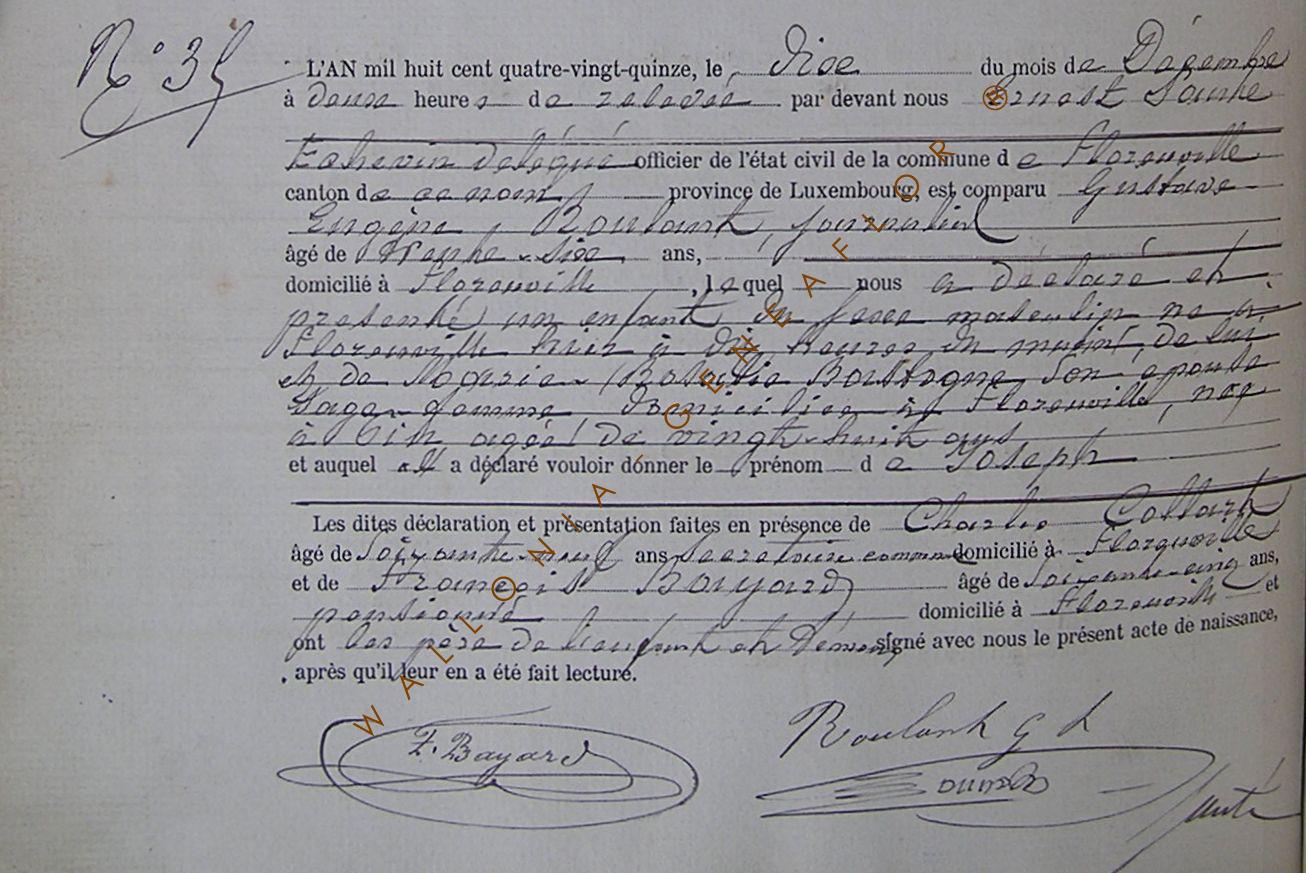 N° 35
L'AN mil huit cent quatre-vingt-quinze, le dix du mois de Décembre
à deux heures de relevée par devant nous Ernest
Echevin délégué officier de l'état civil de la commune de Florenville
canton de ce nom, province de Luxembourg, est comparu Gustave
Eugène Roulant, journalier
âgé de trente-six ans,
domicilié à Florenville, lequel nous a déclaré et
présenté un enfant du sexe masculin né à
Florenville hier à dix heures du matin, de lui
et de Rosalie son épouse
Sage-femme, domiciliée à Florenville, née
à Izel agée de vingt-huit ans
et auquel il a déclaré vouloir donner le prénom de Joseph
Les dites déclaration et présentation faites en présence de Charles Collard
âgé de Soixante-neuf ans Secrétaire communal domicilié à Florenville
et de François Bayard âgé de soixante-cinq ans,
pensionné domicilié à Florenville et
ont les père de l'enfant et témoins signé avec nous le présent acte de naissance,
après qu'il leur en a été fait lecture.
F. Bayard
Roulant G
WALLONIA.GENEAFLOR